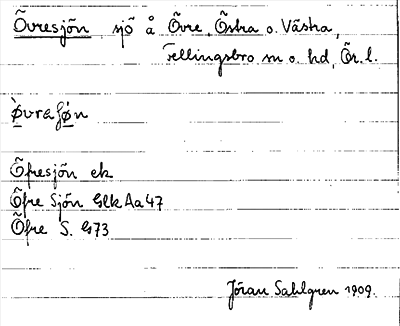 Övresjön sjö å Övre, Östra o. Västra,
Fellingsbro sn o. hd, Ör. l.
Öfresjön ek
Öfre Sjön GlkAa47
Öfre S. G73
Jöran Sahlgren 1909.